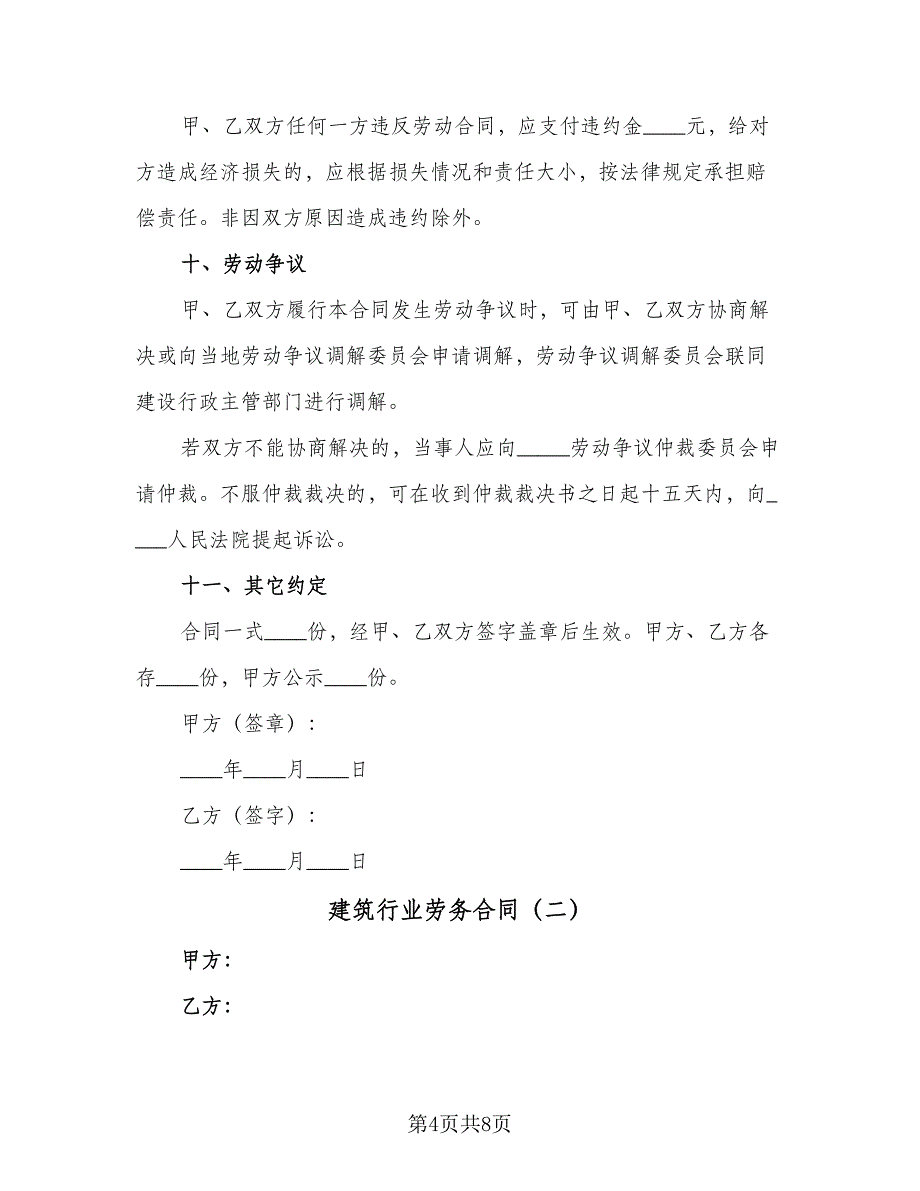 甲、乙双方任何一方违反劳动合同，应支付违约金____元，给对
方造成经济损失的，应根据损失情况和责任大小，按法律规定承担赔
偿责任。非因双方原因造成违约除外。
十、劳动争议
甲、乙双方履行本合同发生劳动争议时，可由甲、乙双方协商解
决或向当地劳动争议调解委员会申请调解，劳动争议调解委员会联同
建设行政主管部门进行调解。
若双方不能协商解决的，当事人应向_____劳动争议仲裁委员会申
请仲裁。不服仲裁裁决的，可在收到仲裁裁决书之日起十五天内，向_
___人民法院提起诉讼。
十一、其它约定
合同一式____份，经甲、乙双方签字盖章后生效。甲方、乙方各
存____份，甲方公示____份。
甲方（签章）：
____年____月____日
乙方（签字）：
____年____月____日
建筑行业劳务合同（二）
甲方：
乙方：
第4页共8页